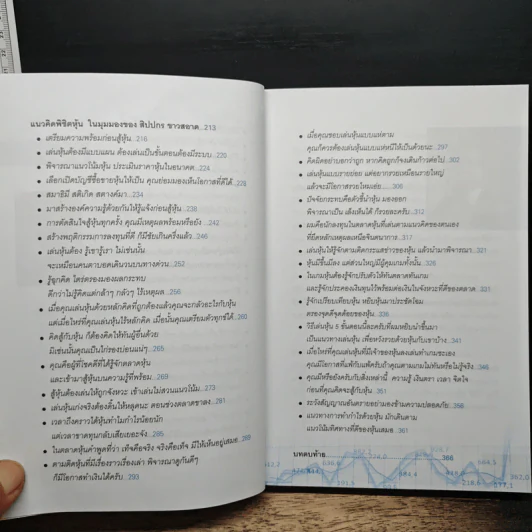 แนวคิดพิชิตหุ้น ในมุมมองของ สิปปกร ขาวสอาด..213
• เตรียมความพร้อมก่อนสู้หุ้น..216
• เล่นหุ้นต้องมีแบบแผน ต้องเล่นเป็นขั้นตอนต้องมีระบบ..220
• พิจารณาแนวโน้มหุ้น ประเมินราคาหุ้นในอนาคต..224
• เลือกเปิดบัญชีซื้อขายหุ้นให้เป็น คุณย่อมมองเห็นโอกาสที่ดีได้..228
• สมาธิมี สติเกิด สตางค์มา..234
• มาสร้างองค์ความรู้ด้วยกันให้รู้แจ้งก่อนสู้หุ้น..238
• การตัดสินใจสู้หุ้นทุกครั้ง คุณมีเหตุผลพร้อมหรือยัง..242
• สร้างพฤติกรรมการลงทุนที่ดี ก็มีชัยเกินครึ่งแล้ว..246
• เล่นหุ้นต้อง รู้เขารู้เรา ไม่เช่นนั้น
จะเหมือนคนตาบอดเดินวนบนทางด่วน..252
• รู้ถูกคิด ไตร่ตรองมองผลกระทบ
ดีกว่าไม่รู้คิดแต่กล้าๆ กลัวๆ ไร้เหตุผล..256
• เมื่อคุณเล่นหุ้นด้วยหลักคิดที่ถูกต้องแล้วคุณจะกลัวอะไรกับหุ้น
แต่เมื่อไหร่ที่คุณเล่นหุ้นไร้หลักคิด เมื่อนั้นคุณเตรียมตัวทุกข์ได้..260
• คิดสู้กับหุ้น ก็ต้องคิดให้ทันผู้อื่นด้วย
มิเช่นนั้นคุณเป็นไก่รองบ่อนแน่ๆ..265
• คุณคือผู้ที่โชคดีที่ได้รู้จักตลาดหุ้น
และเข้ามาสู้หุ้นบนความรู้ที่พร้อม..269
• สู้หุ้นต้องเล่นให้ถูกจังหวะ เข้าเล่นไม่สวนแนวโน้ม..273
• เล่นหุ้นเก่งจริงต้องดิ้นให้หลุดนะ ตอนช่วงตลาดขาลง..281
• เวลาถึงคราวได้หุ้นทำไมกำไรน้อยนัก
แต่เวลาขาดทุนกลับเสียเยอะจัง..285
• ในตลาดหุ้นคำพูดที่ว่า เท็จคือจริง จริงคือเท็จ มีให้เห็นอยู่เสมอ..289
• ตามติดหุ้นที่มีเรื่องราวเรื่องเล่า พิจารณาดูกันดีๆ
ก็มีโอกาสทำเงินได้ครับ..293
• เมื่อคุณชอบเล่นหุ้นแบบแห่ตาม
คุณก็ควรต้องเล่นหุ้นแบบแห่หนีให้เป็นด้วยนะ..297
• คิดผิดอย่าบอกว่าถูก หากคิดถูกก็จงเดินก้าวต่อไป..302
• เล่นหุ้นแบบรายย่อย แต่อยากรวยเหมือนรายใหญ่
แล้วจะมีโอกาสรวยไหมเอ่ย...306
• ปัจจัยกระทบคือตัวชี้นำหุ้น มองออก
พิจารณาเป็น เล็งเห็นได้ ก็รวยละครับ..312
• ผมคือนักลงทุนในตลาดหุ้นที่เล่นตามแนวคิดของตนเอง
ที่ยึดหลักเหตุผลเหนือจินตนาการ..317
• เล่นหุ้นให้รู้จักตามติดกระแสข่าวของหุ้น แล้วนำมาพิจารณา..321
• หุ้นมีขึ้นมีลง แต่ส่วนใหญ่มีผู้คุมเกมทั้งนั้น..326
• ในเกมหุ้นต้องรู้จักปรับตัวให้ทันตลาดทันเกม
และรู้จักประคองเงินลงทุนไว้พร้อมต่อเงินในจังหวะที่ดีของตลาด..331
• รู้จักเปรียบเทียบหุ้น หยิบหุ้นมาประชัดโฉม
ตรองจุดดีจุดด้อยของหุ้น..336
• วิธีเล่นหุ้น 5 ขั้นตอนนี้ละครับที่ผมหยิบนำขึ้นมา
เป็นแนวทางเล่นหุ้น เพื่อหวังรวยด้วยหุ้นกับเขาบ้าง..341
• เมื่อไหร่ที่คุณเล่นหุ้นที่มีเจ้าของหุ้นลงเล่นทำเกมซะเอง
คุณมีโอกาสที่แพ้กับแพ้ครับถ้าคุณตามเกมไม่ทันหรือไม่รู้จริง..346
• คุณมีหรือยังครับกับสิ่งเหล่านี้ ความรู้ เงินตรา เวลา จิตใจ
ก่อนที่คุณคิดจะสู้กับหุ้น..351
• ระวังสัญญาณอันตรายอย่ามองข้ามความปลอดภัย..356
• แนวทางการทำกำไรด้วยหุ้น มักเดินตาม
แนวโน้มทิศทางที่ดีของหุ้นเสมอ..361
บทตบท้าย..............366